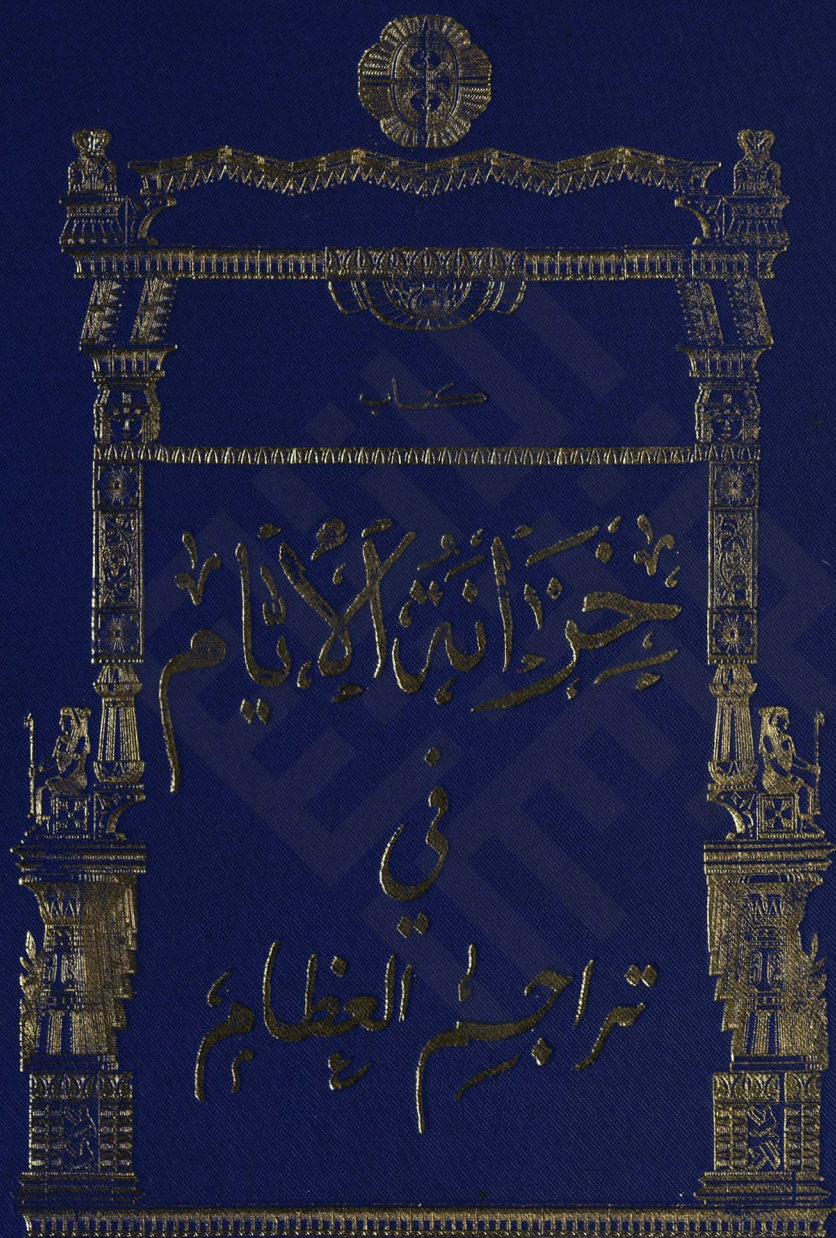 كتاب
خِزَانَةُ الأَيَّام
في
تراجم العظام